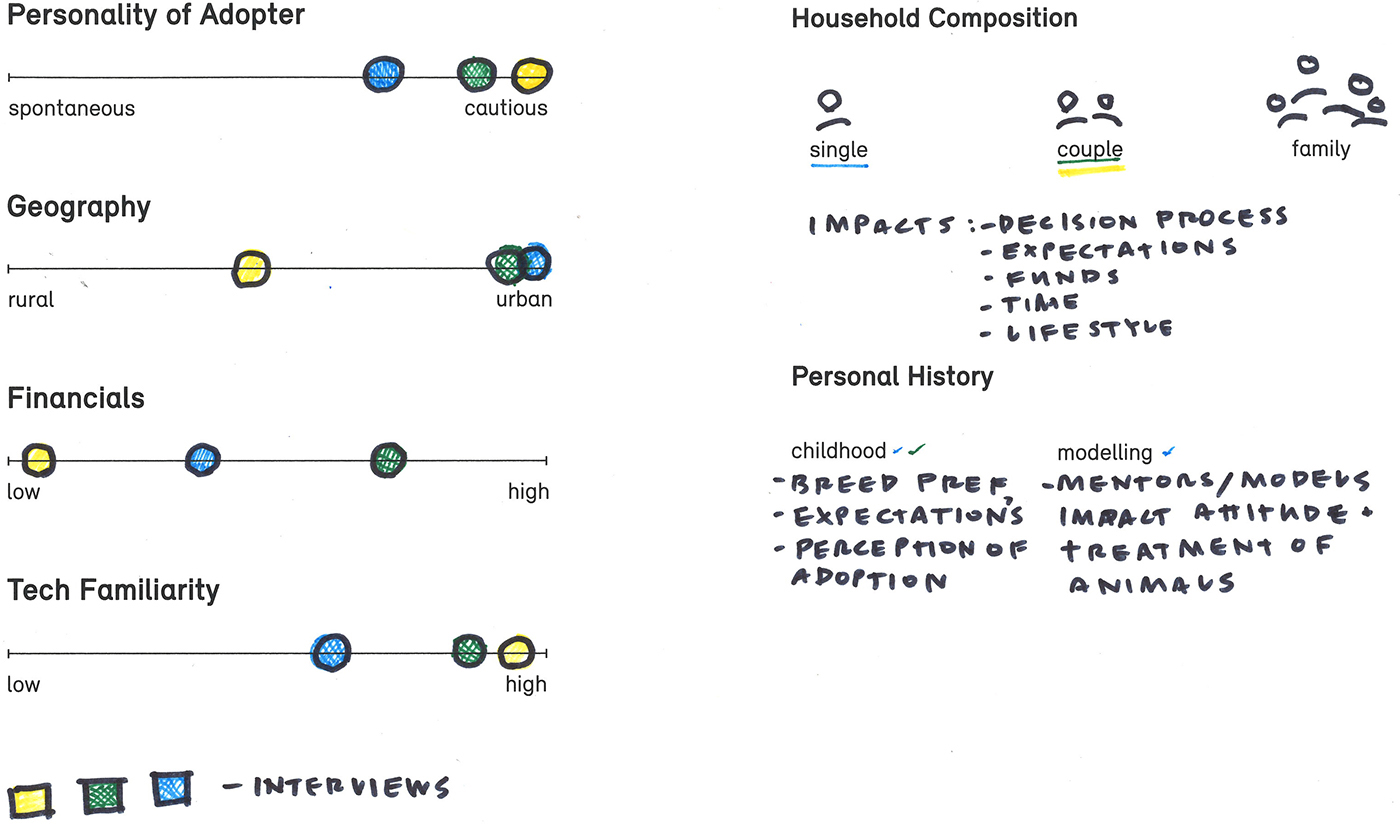 Personality of Adopter
spontaneous
cautious
Geography
rural
urban
Financials
low
high
Tech Familiarity
low
high
- INTERVIEWS
Household Composition
single
couple
family
IMPACTS : - DECISION PROCESS
- EXPECTATIONS
- FUNDS
- TIME
- LIFESTYLE
Personal History
childhood
- BREED PREF,
- EXPECTATIONS
- PERCEPTION OF
ADOPTION
modelling
- MENTORS/MODELS
IMPACT ATTITUDE +
TREATMENT OF
ANIMALS